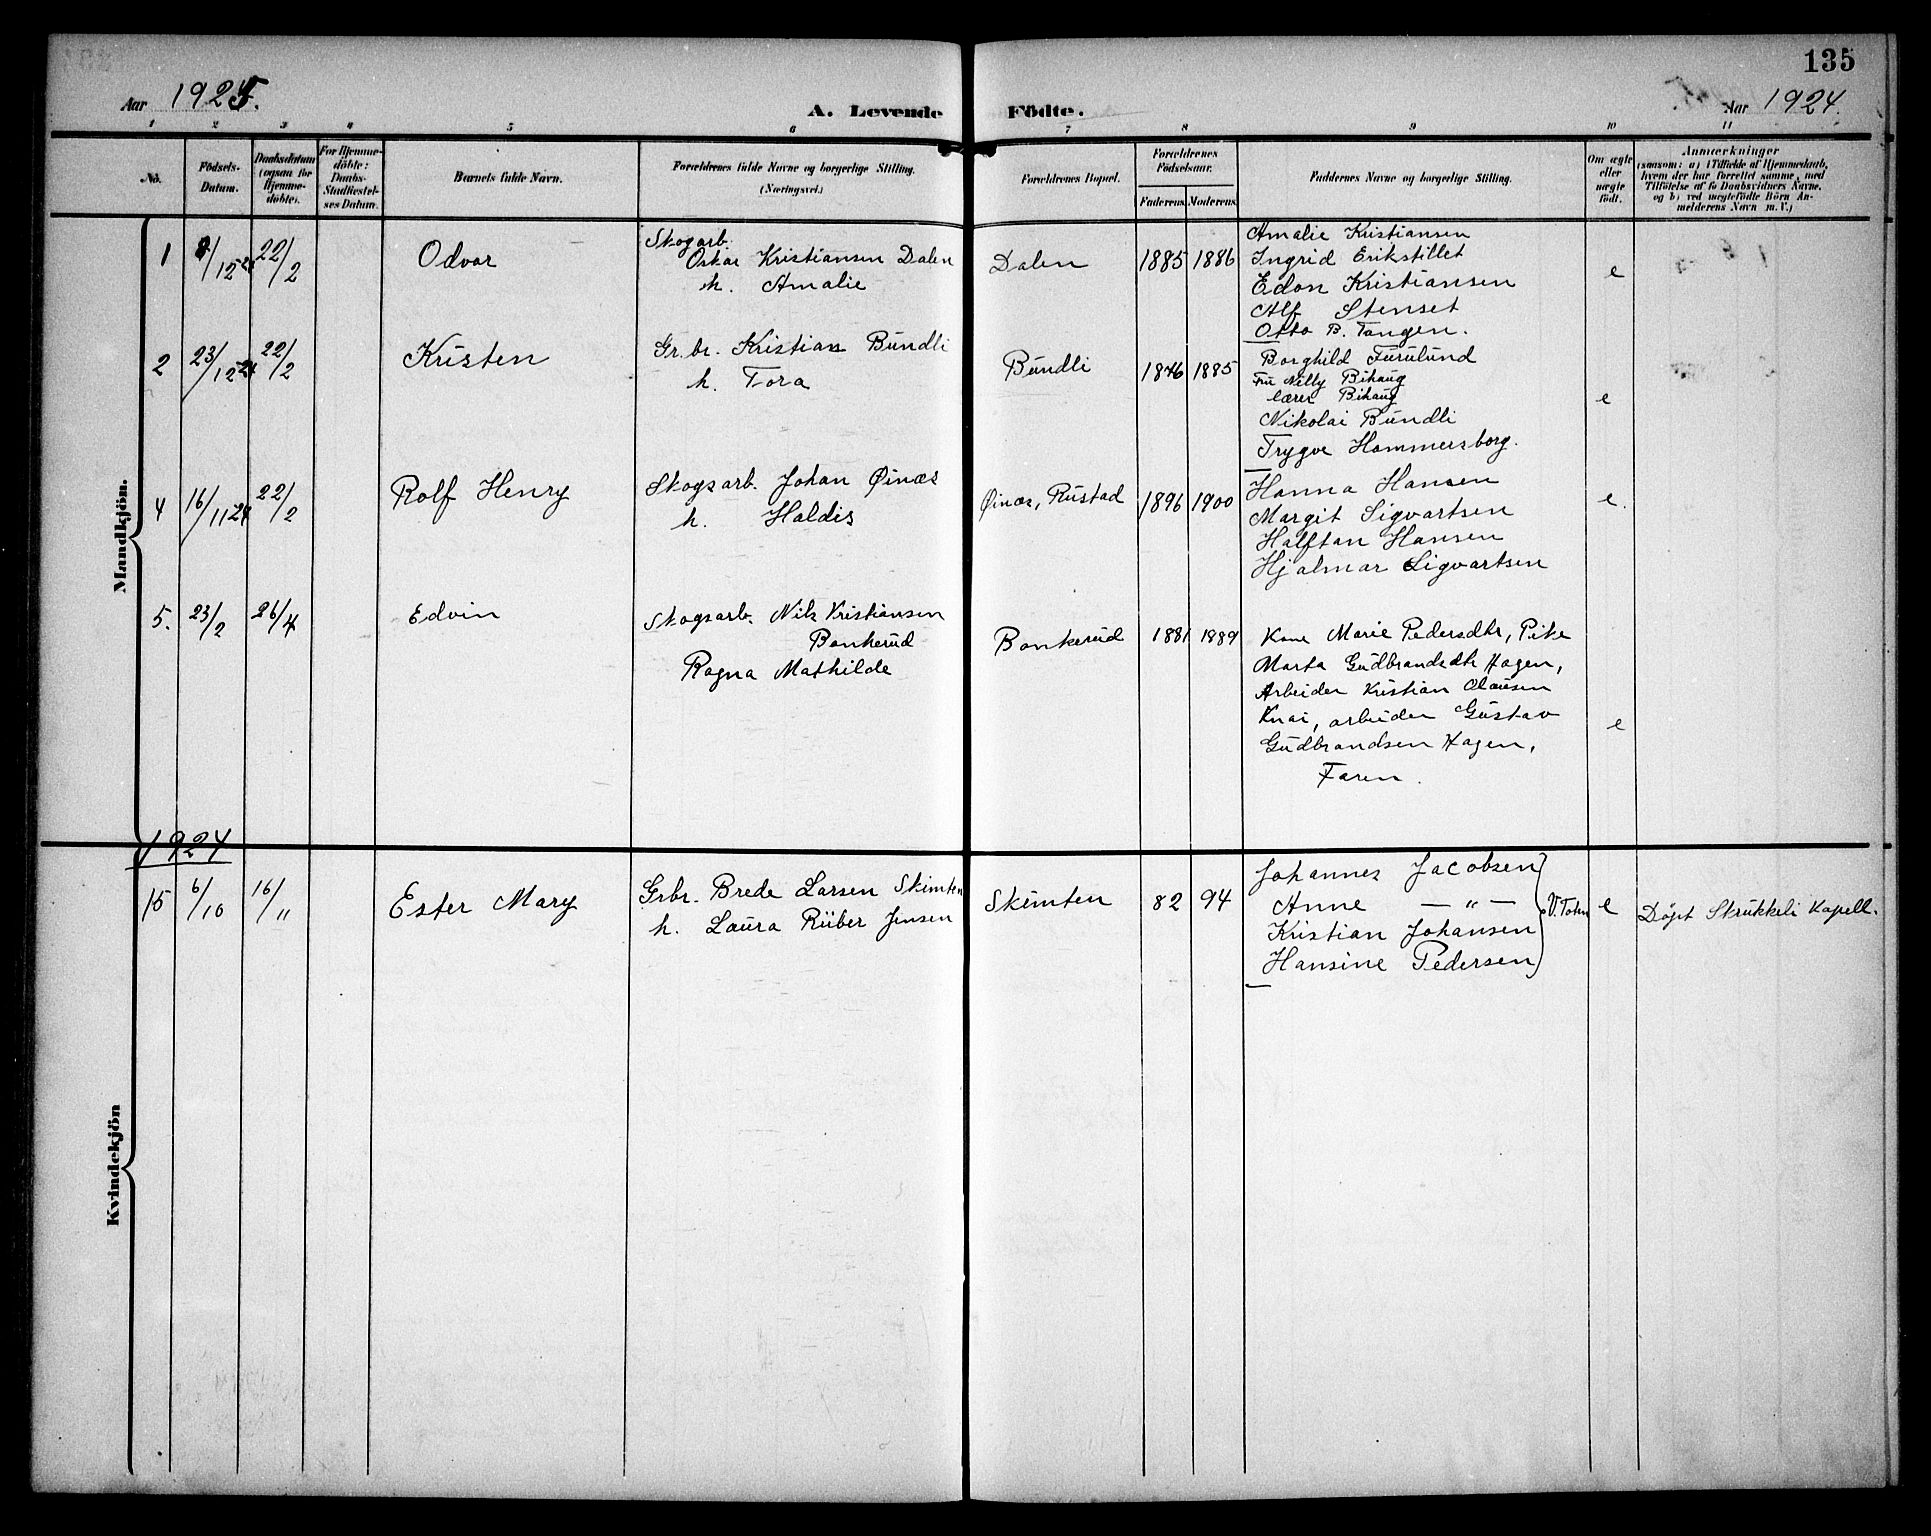 135
Aar 1925.
A. Levende Födte.
Aar 1924.
1 2 3 4 5 6 7 8 9 10 11
No.
Födsels-Datum.
Daabsdatum (ogsaa for Hjemme-döbte).
For Hjemme-döbte: Daabs-Stadfæstel-ses Datum.
Barnets fulde Navn.
Forældrenes fulde Navne og borgerlige Stilling. (Næringsvei.)
Forældrenes Bopæl.
Forældrenes Födselsaar.
Faderens. Moderens.
Faddernes Navne og borgerlige Stilling.
Om ægte eller uægte födt.
Anmærkninger
(saasom: a) i Tilfælde af Hjemmedaab,
hvem der har forrettet samme, med
Tilföielse af to Daabsvidners Navne.
og b) ved uægtefödte Börn An-
melderens Navn m. V.)
Mandkjön.
1 /12 24 22/2 Odvar
Skogarb.
Oskar Kristiansen Dalen
h. Amalie
Dalen 1885 1886
Amalie Kristiansen
Ingrid Erikstillet
Edon Kristiansen
Alf Stenset
Otto B. Tangen.
e
2 23/12 24 22/2 Kristen
Gr.br. Kristian Bundli
h. Tora
Bundli 1876 1885
Borghild Furulund
Fru Nilly Bihaug
lærer Bihaug
Nikolai Bundli
Trygve Hammersborg.
e
4 16/11 24 22/2 Rolf Henry
Skogsarb. Johan Øinæs
h. Haldis
Øinæs, Rustad 1896 1900
Hanna Hansen
Margit Sigvartsen
Halftan Hansen
Hjalmar Sigvartsen
e.
5. 23/2 26/4 Edvin
Skogsarb. Nils Kristiansen
Bankerud
Ragna Mathilde
Bankerud 1881 1889
Kone Marie Pedersdtr, Pike
Marta Gudbrandsdtr Hagen,
Arbeider Kristian Olausen
Knai, arbeider Gustav
Gudbrandsen Hagen,
Faren.
e
1924
Kvindekjön
15 6/10 16/11 Ester Mary
Grbr. Brede Larsen Skimten
h. Laura Rüber Jensen
Skimten 82 94
Johannes Jacobsen
Anne — " —
Kristian Johansen
Hansine Pedersen
V. Toten e Døpt Strukkeli Kapell.